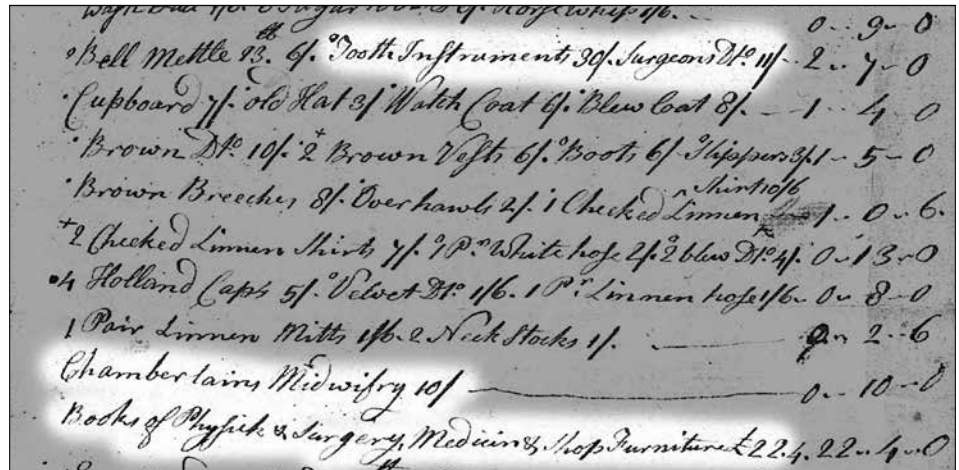 Wash Ball 1/0. 6 Sugar Horse Whip 1/6. 0 - 9 - 0
Bell Mettle 23.lb 6/. Tooth Instruments 30/. Surgeons Dto. 11/ - 2 - 7 - 0
Cupboard 7/. old Hat 3/ Watch Coat 6/. Blew Coat 8/. - 1 - 4 - 0
Brown Dto. 10/. 2 Brown Vests 6/. Boots 6/ Slippers 3/. 1 - 5 - 0
Brown Breeches 8/. Overhawls 2/. 1 Checked Linnen ^ Shirt 10/6 - 1 - 0 - 6.
2 Checked Linnen Shirts 7/. 1 Pr. White hose 2/. 2 blew Dto. 4/. 0 - 13 - 0
4 Holland Caps 5/. Velvet Dto. 1/6. 1 Pr. Linnen hose 1/6 - 0 - 8 - 0
1 Pair Linnen Mitts 1/6. 2 Neck Stocks 1/. - 0 - 2 - 6
Chamberlains Midwifry 10/ - 0 - 10 - 0
Books of Physick & Surgery, Medicin & Shop Furniture £22.4. 22 - 4 - 0